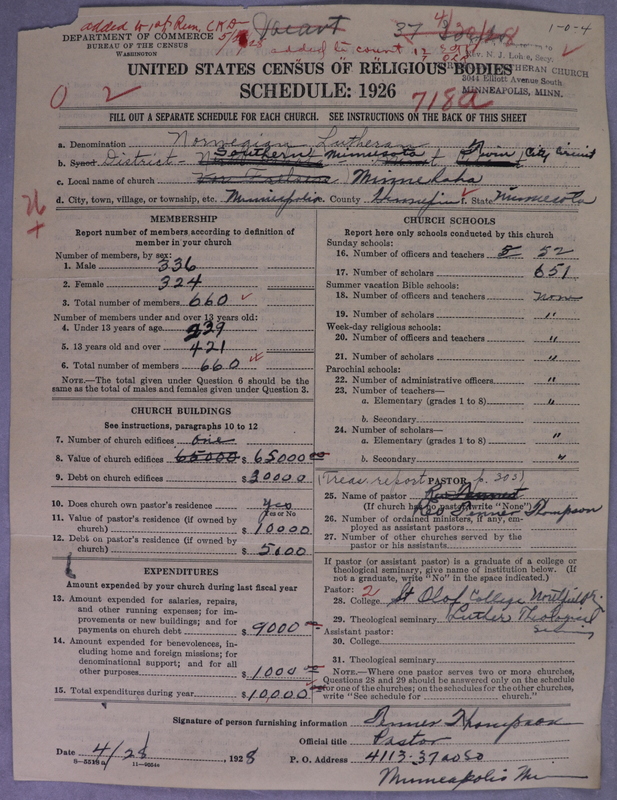 added to 1st Rem. C.K.D.
Vacant
1-0-4
DEPARTMENT OF COMMERCE
BUREAU OF THE CENSUS
WASHINGTON
added to count 12
Rev. N. J. Lohre, Secy.
LUTHERAN CHURCH
3044 Elliott Avenue South
MINNEAPOLIS, MINN.
UNITED STATES CENSUS OF RELIGIOUS BODIES
SCHEDULE: 1926
718a
FILL OUT A SEPARATE SCHEDULE FOR EACH CHURCH. SEE INSTRUCTIONS ON THE BACK OF THIS SHEET
a. Denomination Norwegian Lutheran
b. Synod District - Southern Minnesota (Twin City Circuit
c. Local name of church Minnehaha
d. City, town, village, or township, etc. Minneapolis County Hennepin State Minnesota
MEMBERSHIP
Report number of members according to definition of
member in your church
Number of members, by sex:
1. Male 336
2. Female 324
3. Total number of members 660
Number of members under and over 13 years old:
4. Under 13 years of age 239
5. 13 years old and over 421
6. Total number of members 660
NOTE.—The total given under Question 6 should be the
same as the total of males and females given under Question 3.
CHURCH BUILDINGS
See instructions, paragraphs 10 to 12
7. Number of church edifices one
8. Value of church edifices 65000 $ 65000 00
9. Debt on church edifices $ 30000
10. Does church own pastor's residence yes
Yes or No
11. Value of pastor's residence (if owned by
church) $ 10000
12. Debt on pastor's residence (if owned by
church) $ 5600
EXPENDITURES
Amount expended by your church during last fiscal year
13. Amount expended for salaries, repairs,
and other running expenses; for im-
provements or new buildings; and for
payments on church debt $ 9000
14. Amount expended for benevolences, in-
cluding home and foreign missions; for
denominational support; and for all
other purposes $ 1000
15. Total expenditures during year $ 10,000
CHURCH SCHOOLS
Report here only schools conducted by this church
Sunday schools:
16. Number of officers and teachers 5 52
17. Number of scholars 651
Summer vacation Bible schools:
18. Number of officers and teachers None
19. Number of scholars "
Week-day religious schools:
20. Number of officers and teachers "
21. Number of scholars "
Parochial schools:
22. Number of administrative officers "
23. Number of teachers—
a. Elementary (grades 1 to 8) "
b. Secondary
24. Number of scholars—
a. Elementary (grades 1 to 8) "
b. Secondary "
(Treas. report p. 303)
PASTOR
25. Name of pastor
(If church has no pastor write "None") Thompson
26. Number of ordained ministers, if any, em-
ployed as assistant pastors
27. Number of other churches served by the
pastor or his assistants
If pastor (or assistant pastor) is a graduate of a college or
theological seminary, give name of institution below. (If
not a graduate, write "No" in the space indicated.)
Pastor: 2
28. College St Olaf College Northfield
29. Theological seminary Luther Theological
Assistant pastor:
30. College
31. Theological seminary
NOTE.—Where one pastor serves two or more churches,
Questions 28 and 29 should be answered only on the schedule
for one of the churches; on the schedules for the other churches,
write "See schedule for church."
Signature of person furnishing information Thompson
Official title Pastor
Date 4/28, 1928 P. O. Address 4113-37 av So
Minneapolis Mi